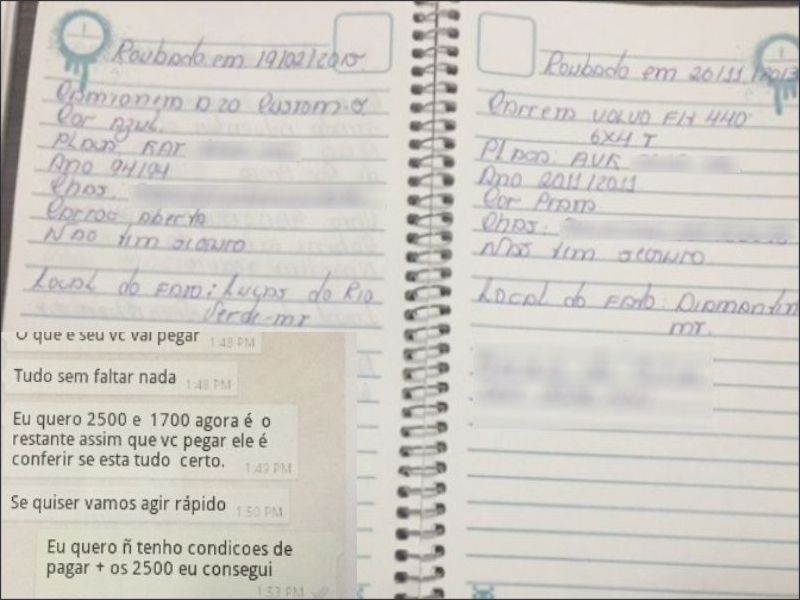 Roubado em 19/02/2015.
Camioneta D20 Custom-S
Cor Azul.
Placa KAT
Ano 94/94
Chas.
Carroc Aberta
Não tem seguro
Local do Fato: Lucas do Rio
Verde-mt
O que é seu vc vai pegar
1:48 PM
Tudo sem faltar nada
1:48 PM
Eu quero 2500 e 1700 agora é o
restante assim que vc pegar ele é
conferir se esta tudo certo.
1:49 PM
Se quiser vamos agir rápido
1:50 PM
Eu quero ñ tenho condicoes de
pagar + os 2500 eu consegui
1:53 PM
Roubado em 20/11/2013
Carreta VOLVO FH 440
6X4 T
Placa: AVK
Ano 2011/2011
Cor Prata
Chas.
Não tem seguro
Local do Fato: Diamantin
mt.